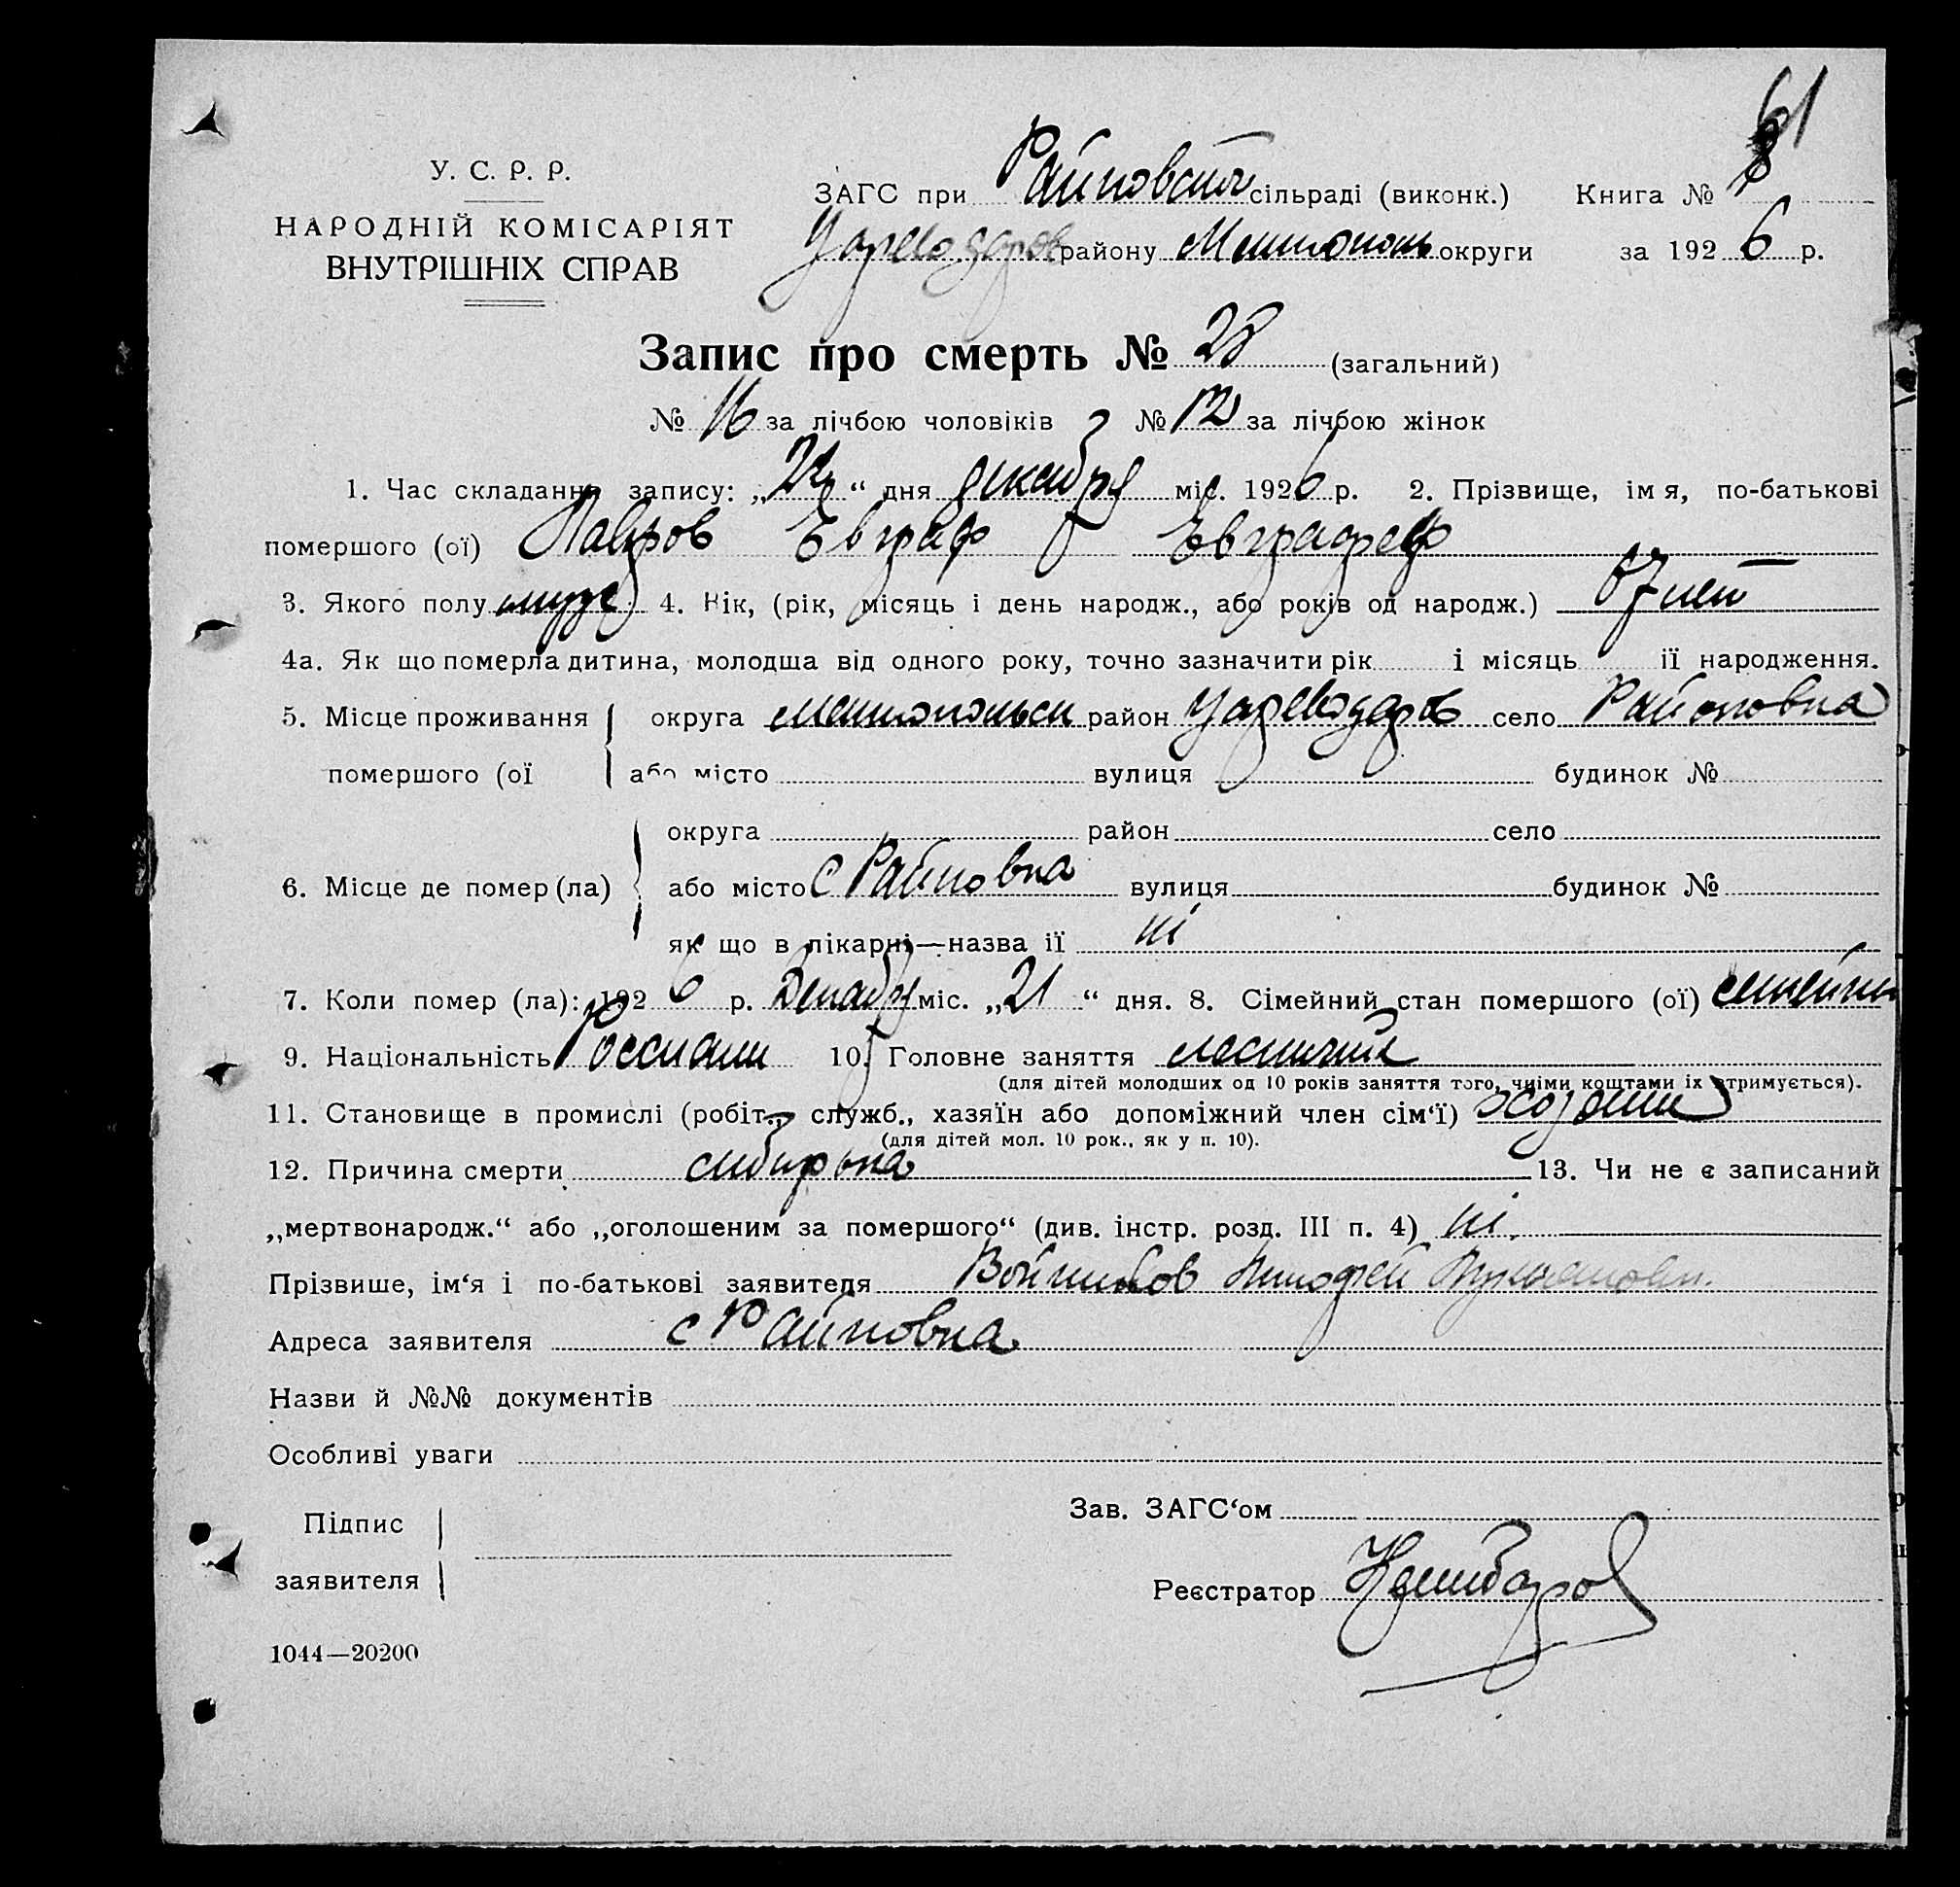 61
У. С. Р. Р.
НАРОДНІЙ КОМІСАРІЯТ
ВНУТРІШНІХ СПРАВ
ЗАГС при сільраді (виконк.) Книга № 8
району округи за 1926 р.
Запис про смерть № 28 (загальний)
№ 16 за лічбою чоловіків № 12 за лічбою жінок
1. Час складання запису: „ “ дня декабря міс. 1926 р. 2. Прізвище, імя, по-батькові
помершого (ої) Лавров Евграф Евграфов
3. Якого полу 4. Вік, (рік, місяць і день народж., або років од народж.) 67 лет
4а. Як що померла дитина, молодша від одного року, точно зазначити рік і місяць її народження.
5. Місце проживання округа район Цареводаров село Райновка
помершого (ої або місто вулиця будинок №
округа район село
6. Місце де помер (ла) або місто с Райновка вулиця будинок №
як що в лікарні—назва її ні
7. Коли помер (ла): 1926 р. Декабр міс. „21“ дня. 8. Сімейний стан помершого (ої) семейны
9. Національність 10. Головне заняття
(для дітей молодших од 10 років заняття того, чиїми коштами їх утримується).
11. Становище в промислі (робіт., служб., хазяїн або допоміжний член сім‘ї)
(для дітей мол. 10 рок., як у п. 10).
12. Причина смерти сибирька 13. Чи не є записаний
„мертвонародж.“ або „оголошеним за помершого“ (див. інстр. розд. III п. 4) ні.
Прізвише, ім‘я і по-батькові заявителя
Адреса заявителя с Райновка
Назви й №№ документів
Особливі уваги
Підпис
заявителя
Зав. ЗАГС‘ом
Реєстратор
1044—20200